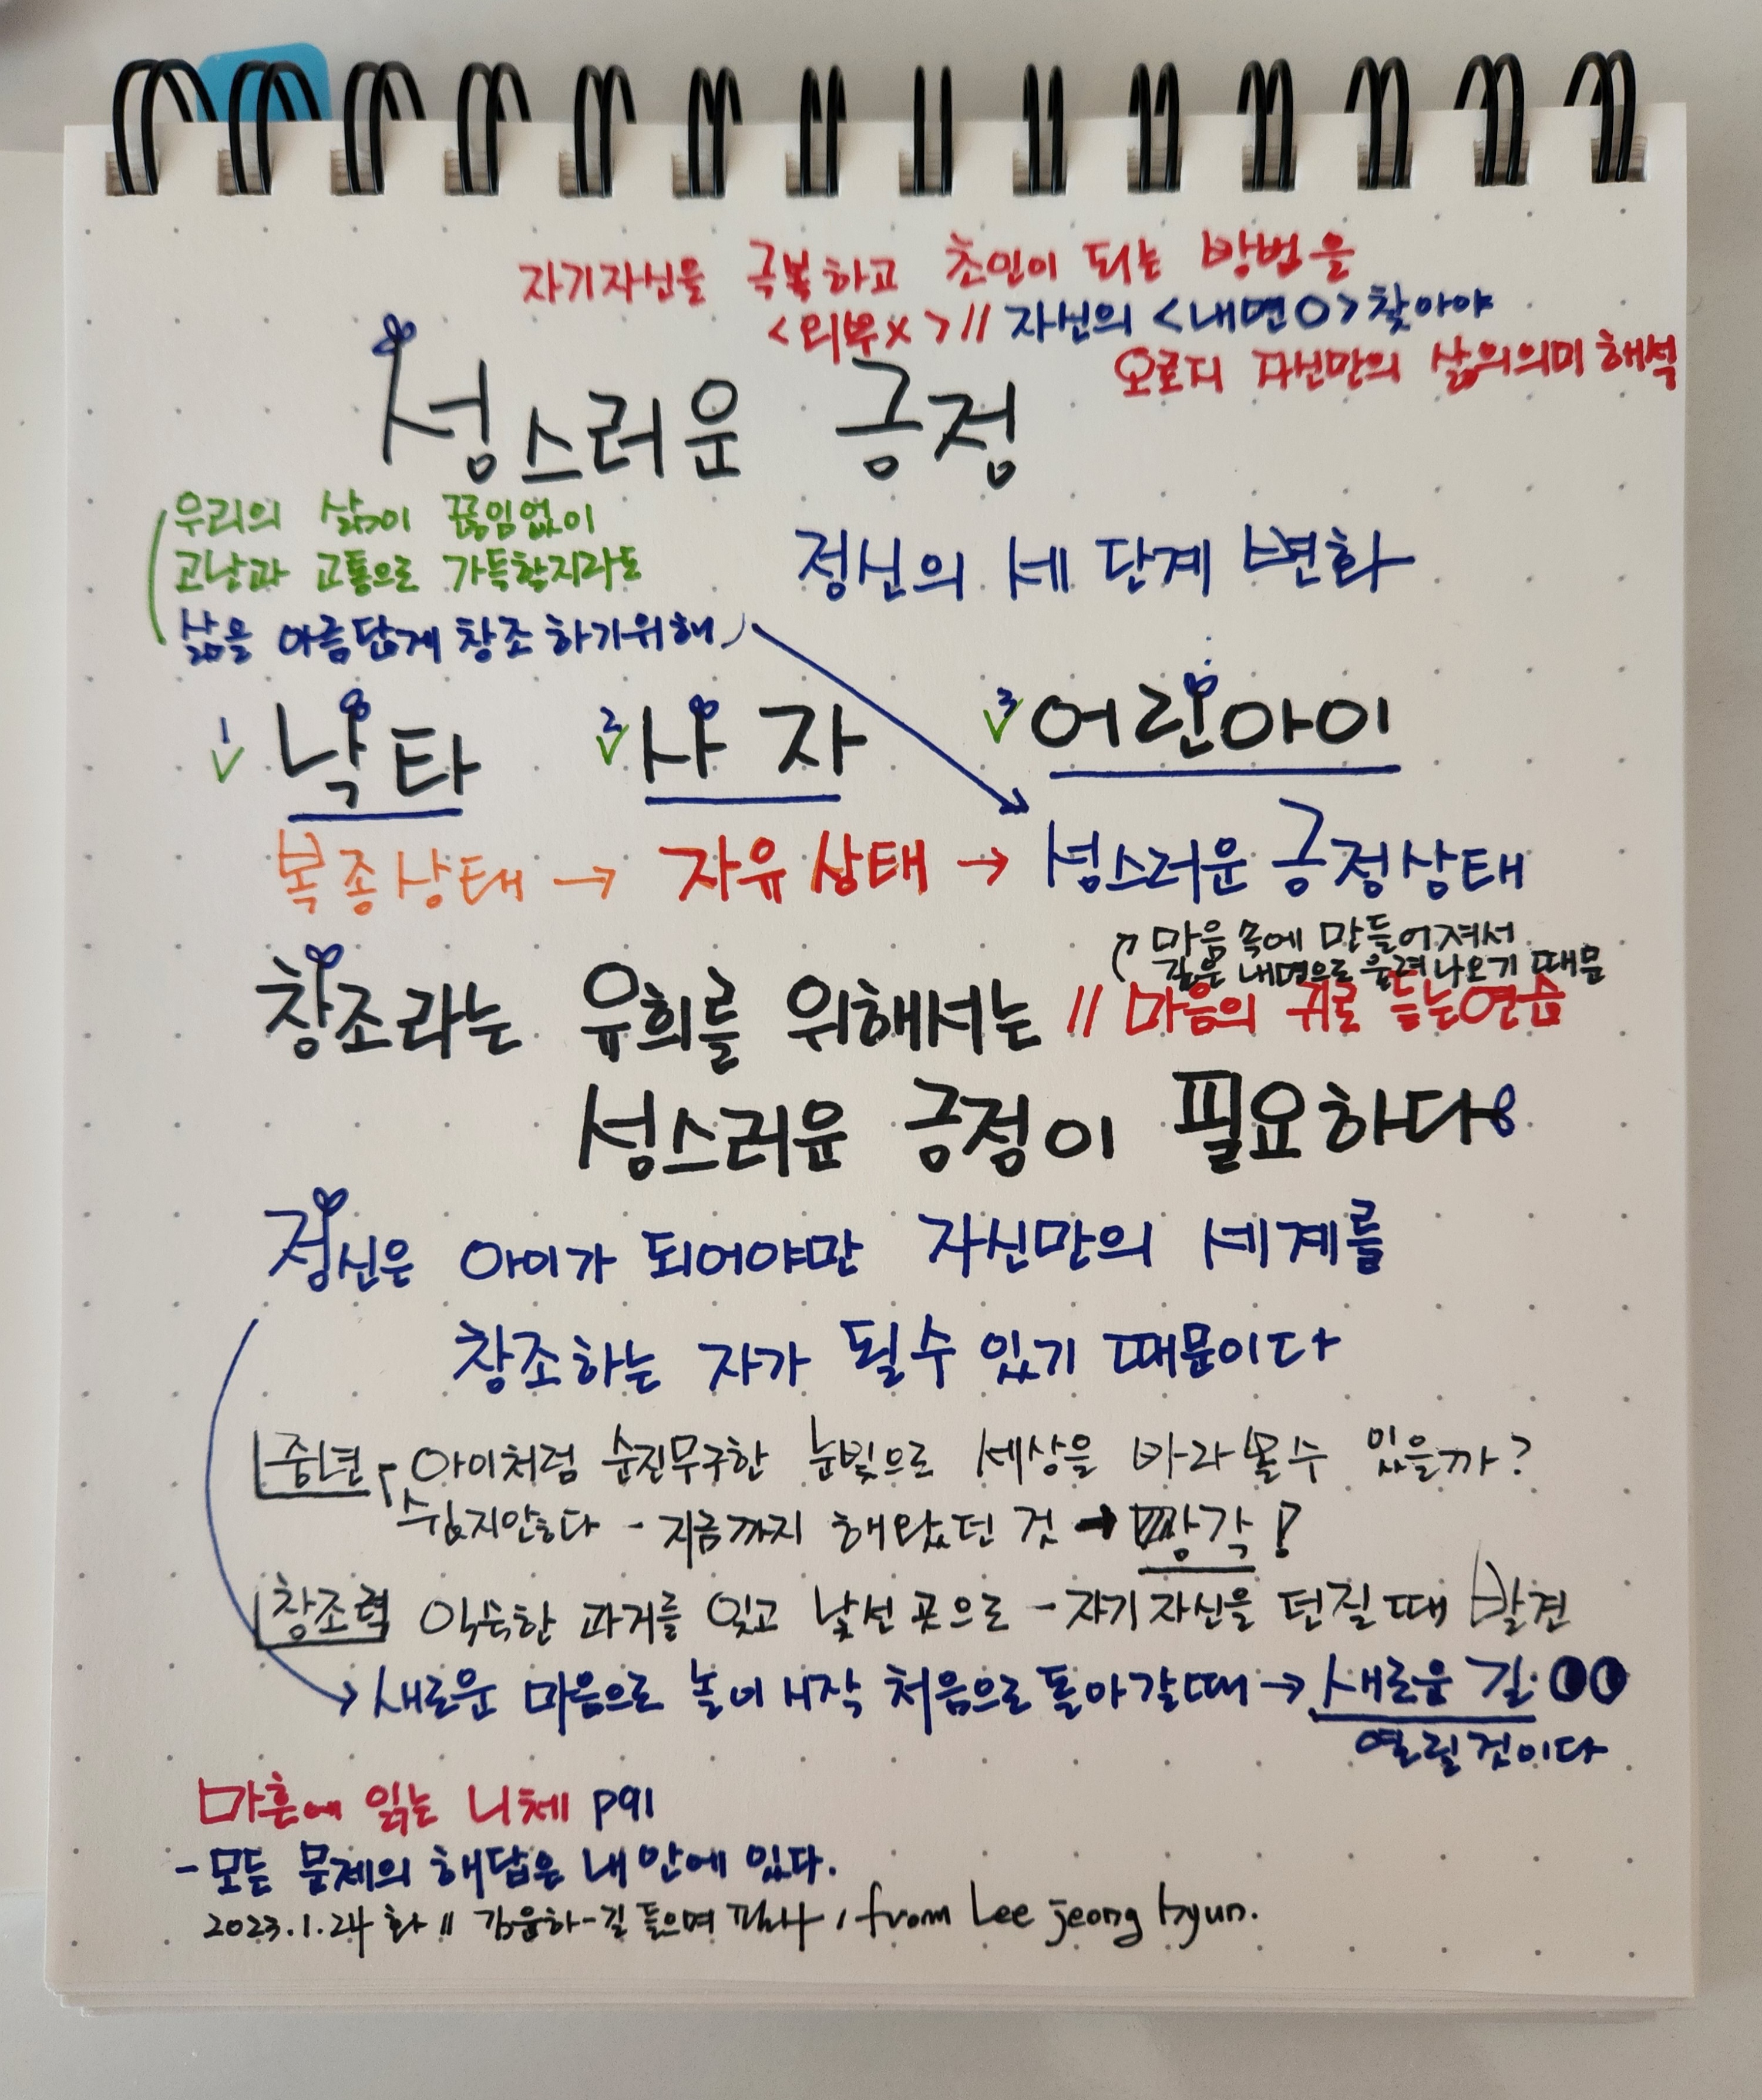 자기자신을 극복하고 초인이 되는 방법을
<외부x> // 자신의 <내면O> 찾아야
오로지 자신만의 삶의의미 해석
성스러운 긍정
우리의 삶이 끊임없이
고난과 고통으로 가득할지라도
삶을 아름답게 창조하기위해
정신의 세 단계 변화
1 낙타 2 사자 3 어린아이
복종상태 → 자유상태 → 성스러운 긍정상태
마음 속에 만들어져서
깊은 내면으로 울려나오기 때문
창조라는 유희를 위해서는 // 마음의 귀로 듣는연습
성스러운 긍정이 필요하다
정신은 아이가 되어야만 자신만의 세계를
창조하는 자가 될수 있기 때문이다
중년 - 아이처럼 순진무구한 눈빛으로 세상을 바라볼수 있을까?
쉽지안하다 - 지금까지 해왔던 것 → 망각!
창조력 익숙한 과거를 잊고 낯선 곳으로 - 자기자신을 던질때 발견
→ 새로운 마음으로 놀이시작 처음으로 돌아갈때 → 새로운 길
열릴것이다
마흔에 읽는 니체 P91
- 모든 문제의 해답은 내안에 있다.
2023.1.24 화 // 김윤하-길 들으며 필사, from Lee jeong hyun.